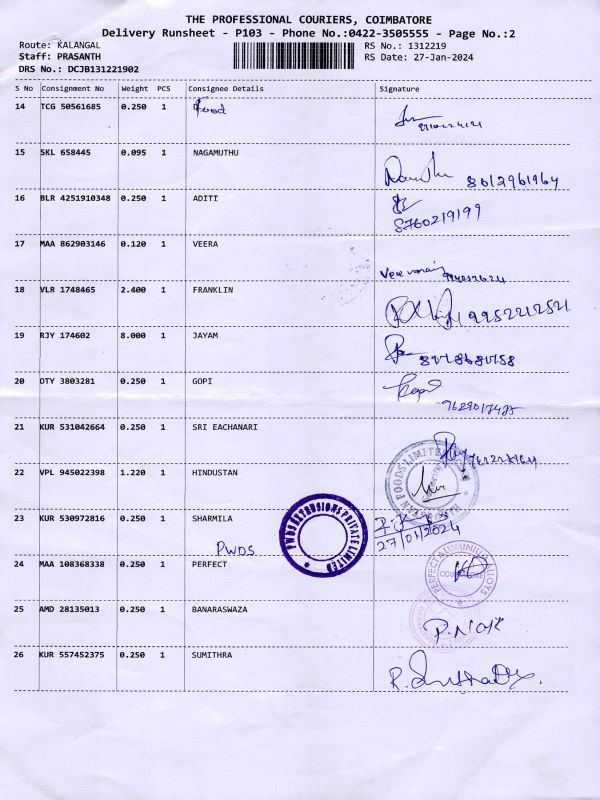 THE PROFESSIONAL COURIERS, COIMBATORE
Delivery Runsheet - P103 - Phone No.:0422-3505555 - Page No.:2
Route: KALANGAL RS No.: 1312219
Staff: PRASANTH RS Date: 27-Jan-2024
DRS No.: DCJB131221902
S No Consignment No Weight PCS Consignee Details Signature
14 TCG 50561685 0.250 1 Food
15 SKL 658445 0.095 1 NAGAMUTHU
8012961964
16 BLR 4251910348 0.250 1 ADITI
8760219199
17 MAA 862903146 0.120 1 VEERA
18 VLR 1748465 2.400 1 FRANKLIN
9952212521
19 RJY 174602 8.000 1 JAYAM
20 OTY 3803281 0.250 1 GOPI
Gopi
21 KUR 531042664 0.250 1 SRI EACHANARI
22 VPL 945022398 1.220 1 HINDUSTAN
FOODS LIMITED
23 KUR 530972816 0.250 1 SHARMILA
PWDS
PWDS EXTRUSIONS PRIVATE LIMITED
27/01/2024
24 MAA 108368338 0.250 1 PERFECT
PERFECT ALUMINIUM ALLOYS
COIMBATORE
25 AMD 28135013 0.250 1 BANARASWAZA
26 KUR 557452375 0.250 1 SUMITHRA